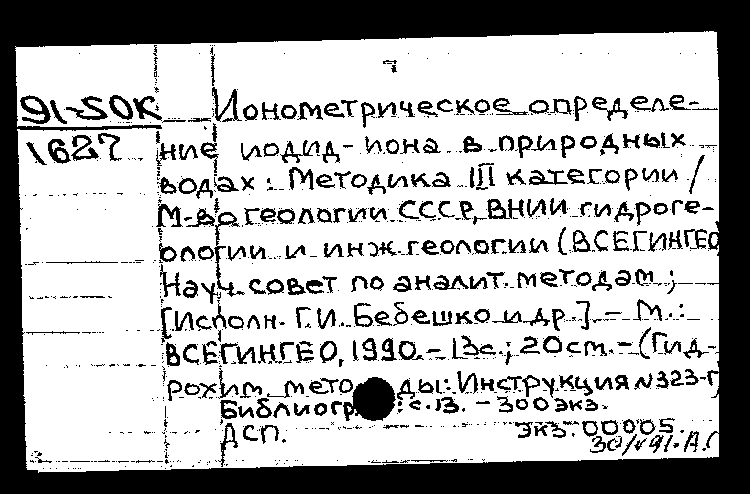 7
91-50К Ионометрическое определе-
1627 ние иодид-иона в природных
водах: Методика III категории /
М-во геологии СССР, ВНИИ гидроге-
ологии и инж. геологии (ВСЕГИНГЕО
Науч. совет по аналит. методам;
[Исполн. Г.И. Бебешко и др.] - М.:
ВСЕГИНГЕО, 1990. - 13с.; 20см. - (Гид-
рохим. методы: Инструкция N323-Г
Библиогр.: с.13. - 300 экз.
ДСП. экз. 00005.